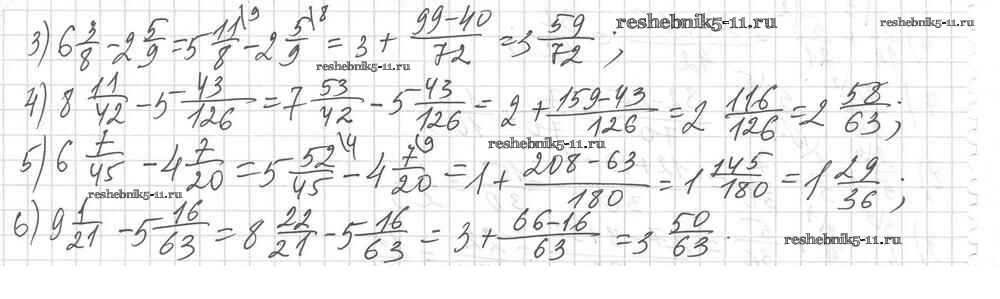 3) 6 3/8 - 2 5/9 = 5 11/8 \9 - 2 5/9 \8 = 3 + (99-40)/72 = 3 59/72 ; reshebnik5-11.ru reshebnik5-11.ru
reshebnik5-11.ru
4) 8 11/42 - 5 43/126 = 7 53/42 - 5 43/126 = 2 + (159-43)/126 = 2 116/126 = 2 58/63 ;
reshebnik5-11.ru
5) 6 7/45 - 4 7/20 = 5 52/45 \4 - 4 7/20 \9 = 1 + (208-63)/180 = 1 145/180 = 1 29/36 ;
reshebnik5-11.ru
6) 9 1/21 - 5 16/63 = 8 22/21 - 5 16/63 = 3 + (66-16)/63 = 3 50/63 . reshebnik5-11.ru